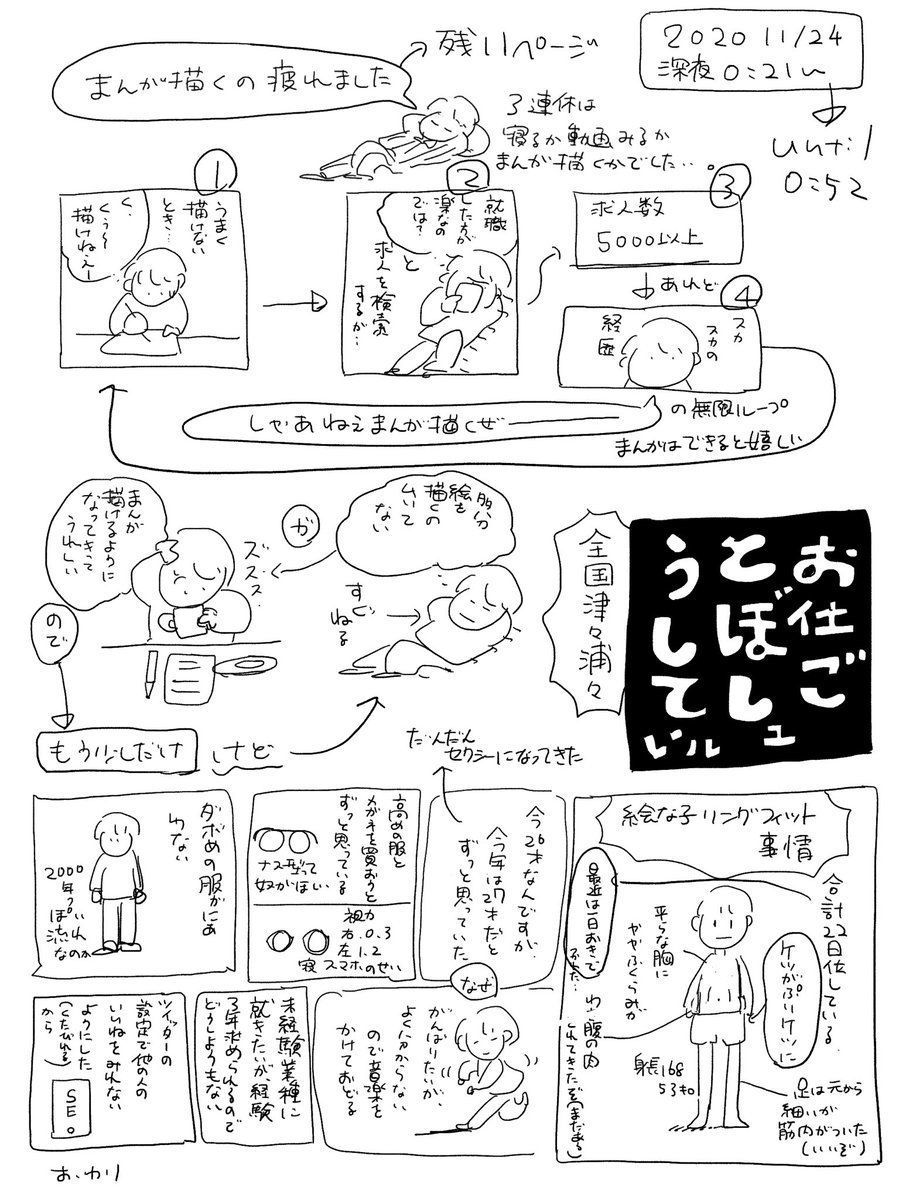 まんが描くの疲れました
残り1ページ
2020 11/24
深夜0:21〜
until
0:52
3連休は
寝るか動画みるか
まんが描くかでした…
①
うまく
描けない
とき…
く、
くぅ〜
描けねぇー
②
就職
した方が
楽なの
では?
と
求人を検索
するが…
③
求人数
5000以上
あれど
④
スカ
スカの
経歴
しゃあねえまんが描くぜ
の無限ループ
まんがはできると嬉しい
まんが
描けるように
なってきって
うれしい
ズズズ
が
多分
絵を
描くの
ムいて
ない
すぐ
ねる
ので
もう少しだけ
けど
全国津々浦々
お仕ご
とぼしュ
うしているい
だんだん
セクシーになってきた
ダボめの服がにあ
わない
2000
年っ
ぽい
流れ
なのか
高めの服と
メガネを買おうと
ずっと思っている
ナス型って
奴がほしい
視力
右.0.3
左1.2
寝スマホのせい
今26才なんですが、
今年は27才だと
ずっと思っていた
なぜ
絵な子リングフィット
事情
合計22日位している.
ケツがぷりケツに
最近は一日おきで
平らな胸に
ややふくらみが
わき腹の肉
とれてきたぞ(まだある)
身長168
53キロ
足は元から
細いが
筋肉がついた
(いいぞ)
ツイッターの
設定で他の人の
いいねをみれない
ようにした
(くたびれる
から)
SE。
未経験業種に
就きたいが、経験
3年求められるので
どうしようもない
がんばりたいが、
よく分からない
ので音楽を
かけておどる
おわり